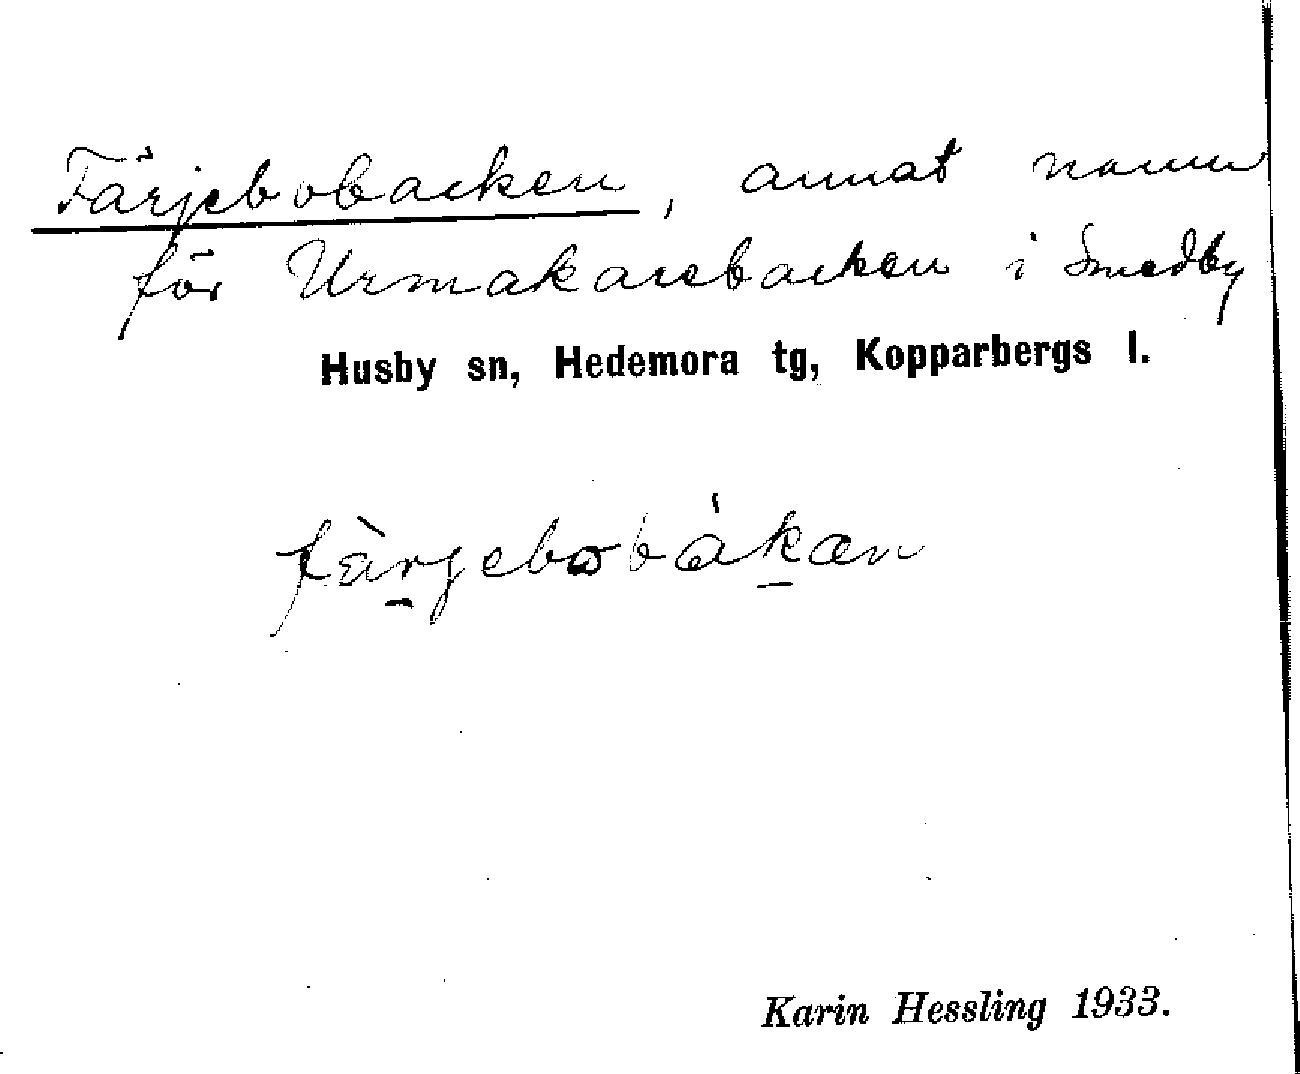 Färjebobacken, annat namn
för Urmakarebacken i Smedby
Husby sn, Hedemora tg, Kopparbergs l.
fä̀rjebobákan
Karin Hessling 1933.